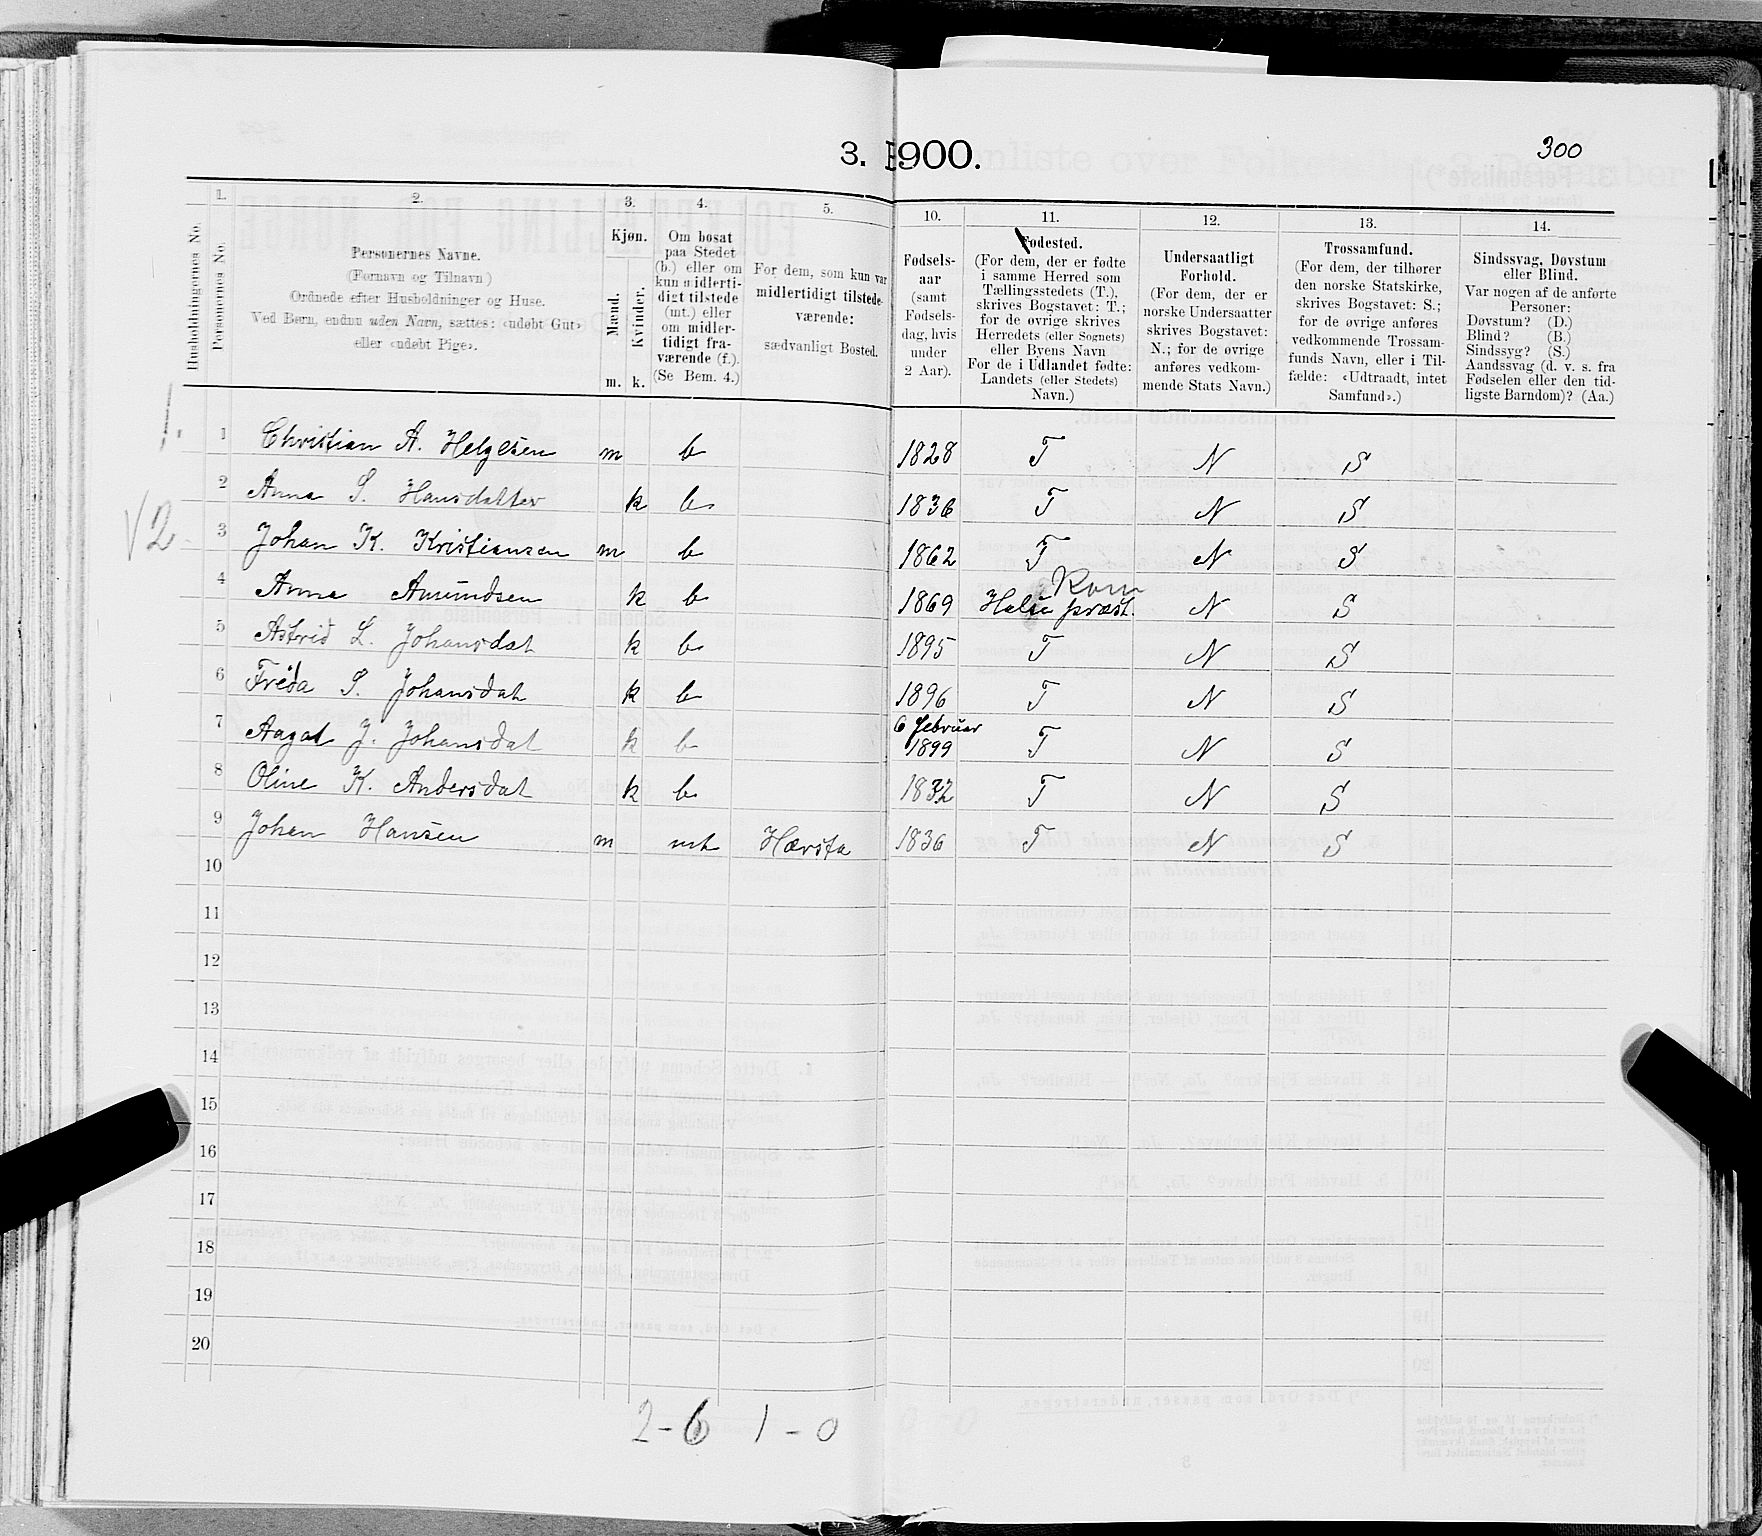 3. 1900.
300
1. 2. 3. 4. 5. 10. 11. 12. 13. 14.
Husholdningernes No.
Personernes No.
Personernes Navne.
(Fornavn og Tilnavn)
Ordnede efter Husholdninger og Huse.
Ved Børn, endnu uden Navn, sættes: «udøbt Gut»
eller «udøbt Pige».
Kjøn.
Mænd.
Kvinder.
m. k.
Om bosat
paa Stedet
(b.) eller om
kun midlerti-
digt tilstede
(mt.) eller
om midler-
tidigt fra-
værende (f.).
(Se Bem. 4.)
For dem, som kun var
midlertidigt tilstede-
værende:
sædvanligt Bosted.
Fødsels-
aar
(samt
Fødsels-
dag, hvis
under
2 Aar).
Fødested.
(For dem, der er fødte
i samme Herred som
Tællingsstedets (T.),
skrives Bogstavet: T.;
for de øvrige skrives
Herredets (eller Sognets)
eller Byens Navn
For de i Udlandet fødte:
Landets (eller Stedets)
Navn.)
Undersaatligt
Forhold.
(For dem, der er
norske Undersaatter
skrives Bogstavet:
N.; for de øvrige
anføres vedkom-
mende Stats Navn.)
Trossamfund.
(For dem, der tilhører
den norske Statskirke,
skrives Bogstavet: S.;
for de øvrige anføres
vedkommende Trossam-
funds Navn, eller i Til-
fælde: «Udtraadt, intet
Samfund».)
Sindssvag, Døvstum
eller Blind.
Var nogen af de anførte
Personer:
Døvstum? (D.)
Blind? (B.)
Sindssyg? (S.)
Aandssvag (d. v. s. fra
Fødselen eller den tid-
ligste Barndom)? (Aa.)
1. 1 Christian A. Helgesen m b 1828 T N S
2 Anna S. Hansdatter k b 1836 T N S
√2 3 Johan K. Kristiansen m b 1862 T N S
Kom
4 Anna Amundsen k b 1869 præst. N S
5 Astrid L. Johansdat k b 1895 T N S
6 Freda S. Johansdat k b 1896 T N S
6 Februar
7 Aagat J. Johansdat k b 1899 T N S
8 Oline K. Andersdat k b 1832 T N S
9 Johan Hansen m mt Hærsta 1836 T N S
10
11
12
13
14
15
16
17
18
19
20
2-6 1-0